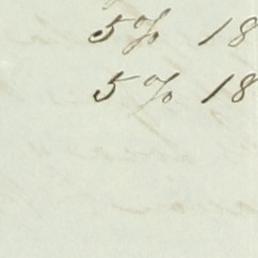 5% 18
5% 18